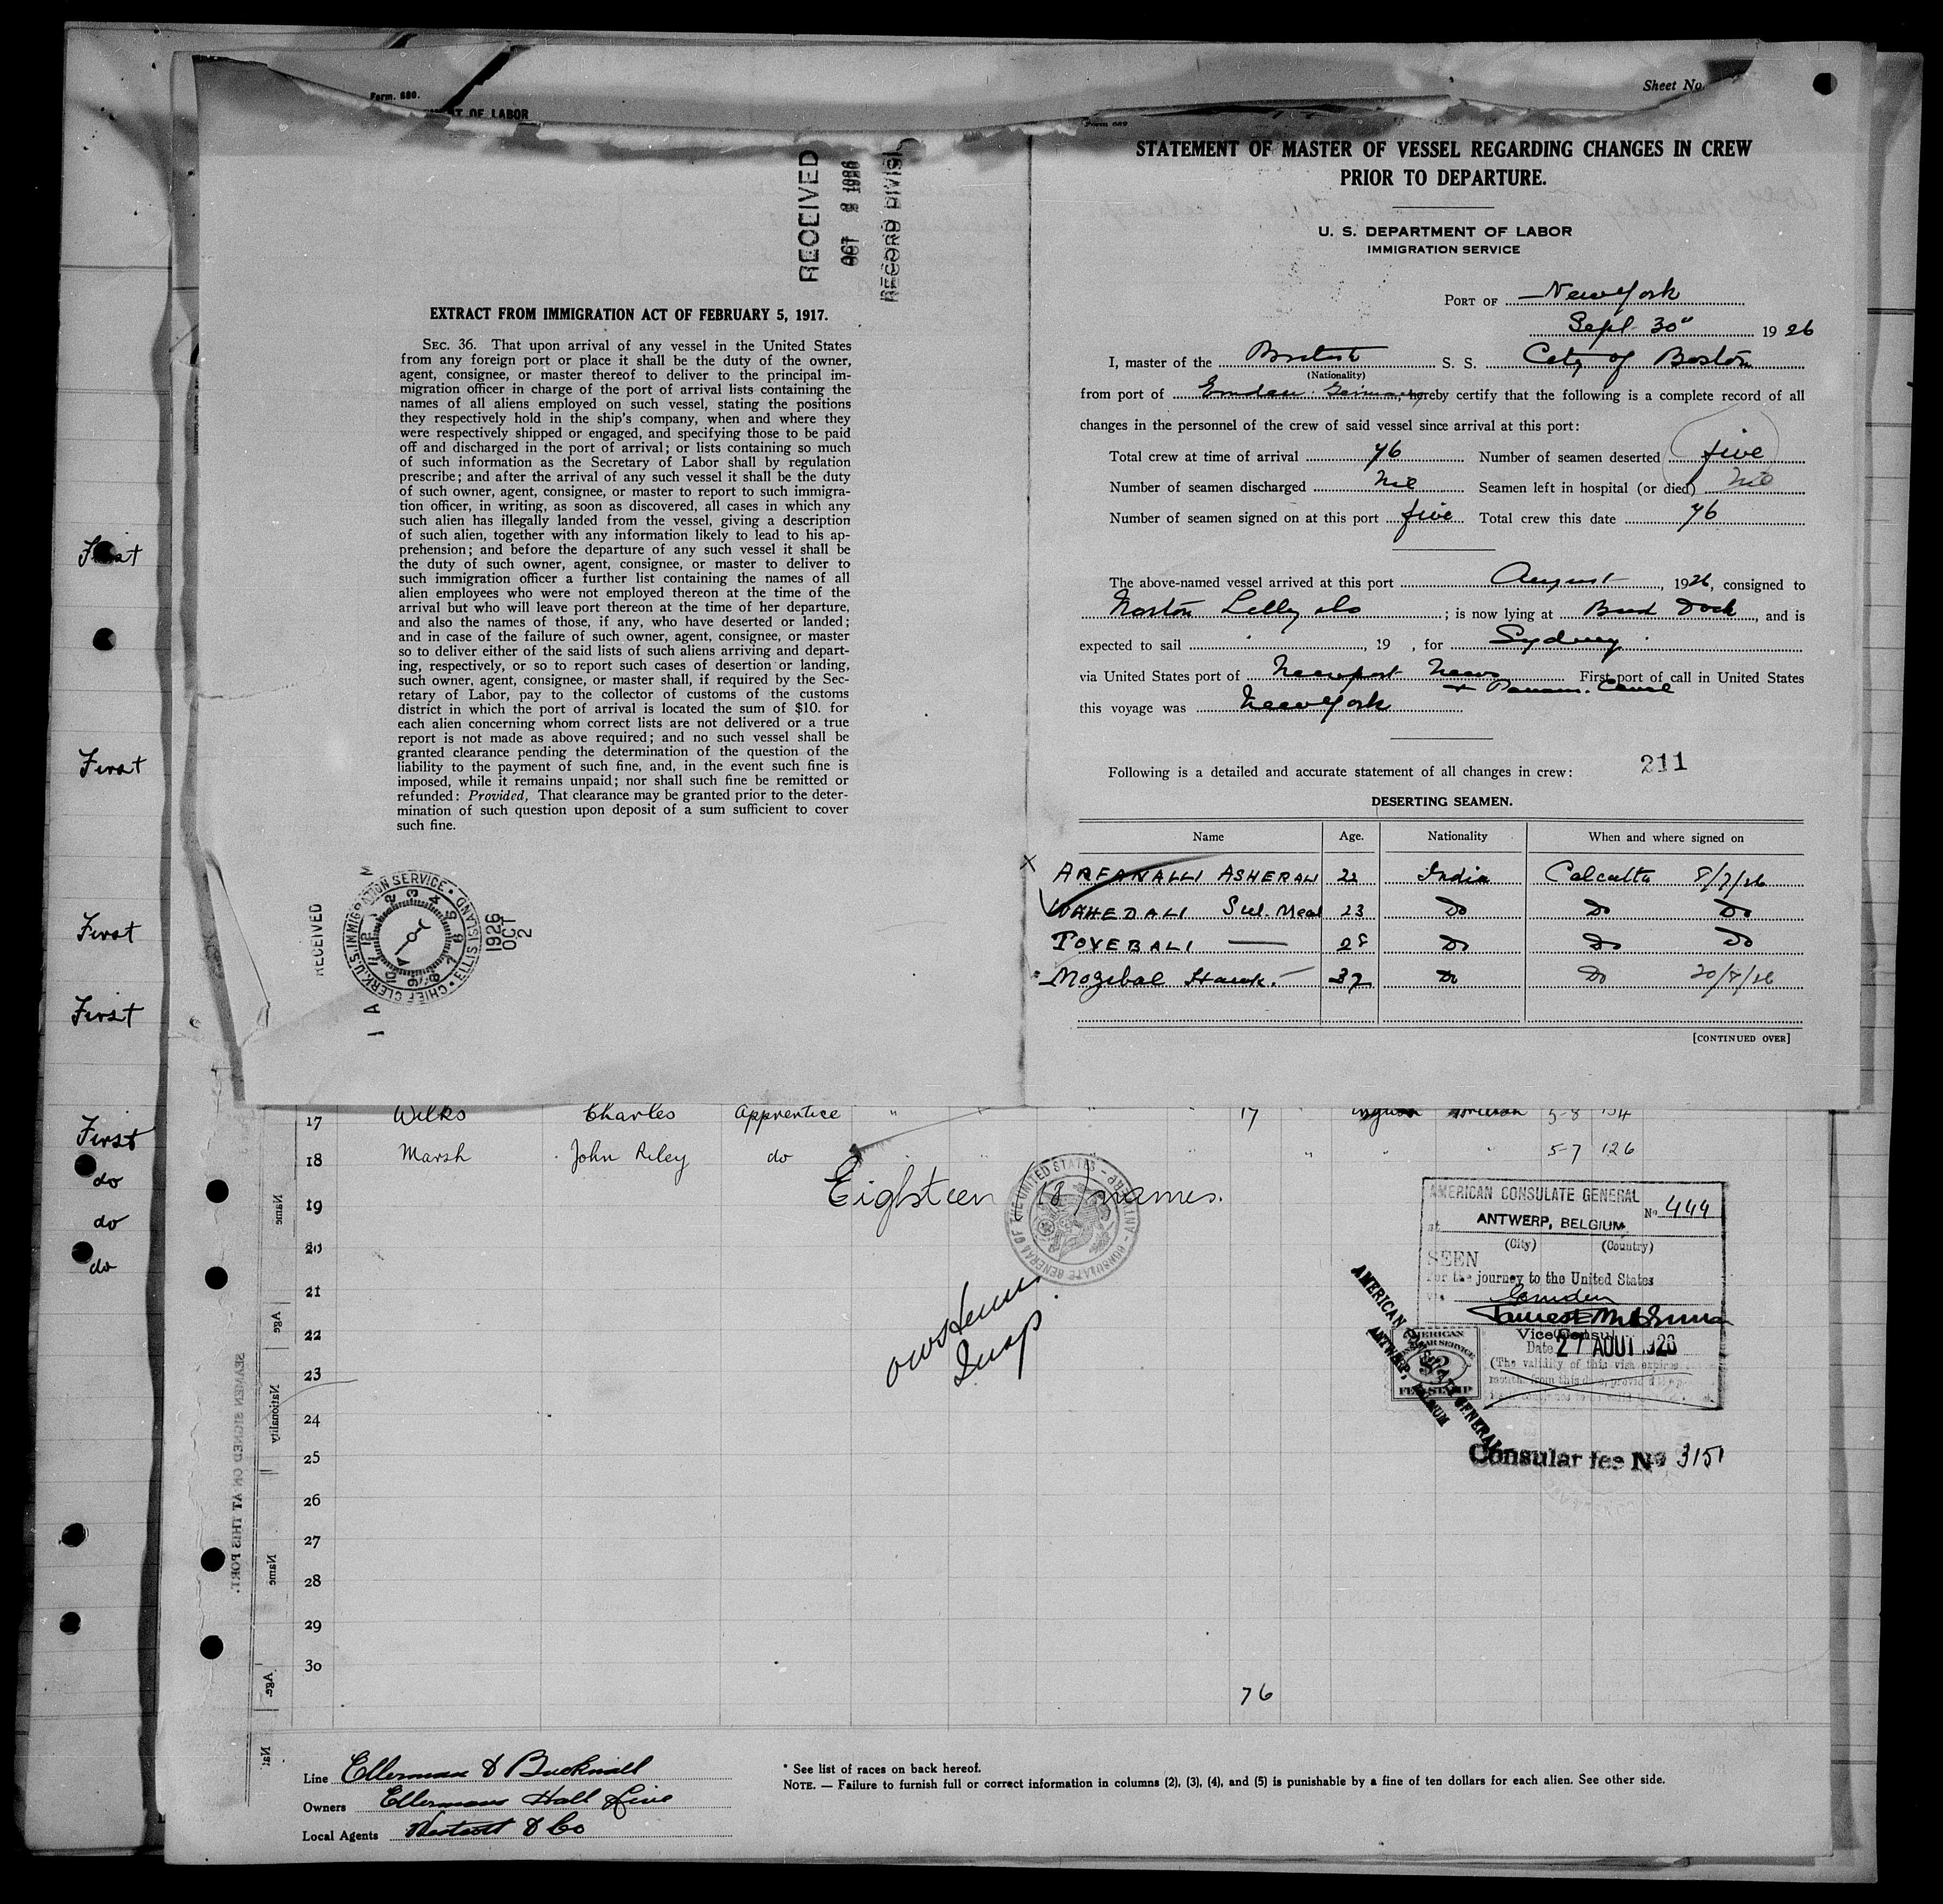 First
First
First
First
First
do
do
do
Form. 680.
T OF LABOR
Sheet No.
RECEIVED
OCT 1926
RECORD DIVISI
EXTRACT FROM IMMIGRATION ACT OF FEBRUARY 5, 1917.
SEC. 36. That upon arrival of any vessel in the United States
from any foreign port or place it shall be the duty of the owner,
agent, consignee, or master thereof to deliver to the principal im-
migration officer in charge of the port of arrival lists containing the
names of all aliens employed on such vessel, stating the positions
they respectively hold in the ship's company, when and where they
were respectively shipped or engaged, and specifying those to be paid
off and discharged in the port of arrival; or lists containing so much
of such information as the Secretary of Labor shall by regulation
prescribe; and after the arrival of any such vessel it shall be the duty
of such owner, agent, consignee, or master to report to such immigra-
tion officer, in writing, as soon as discovered, all cases in which any
such alien has illegally landed from the vessel, giving a description
of such alien, together with any information likely to lead to his ap-
prehension; and before the departure of any such vessel it shall be
the duty of such owner, agent, consignee, or master to deliver to
such immigration officer a further list containing the names of all
alien employees who were not employed thereon at the time of the
arrival but who will leave port thereon at the time of her departure,
and also the names of those, if any, who have deserted or landed;
and in case of the failure of such owner, agent, consignee, or master
so to deliver either of the said lists of such aliens arriving and depart-
ing, respectively, or so to report such cases of desertion or landing,
such owner, agent, consignee, or master shall, if required by the Sec-
retary of Labor, pay to the collector of customs of the customs
district in which the port of arrival is located the sum of $10. for
each alien concerning whom correct lists are not delivered or a true
report is not made as above required; and no such vessel shall be
granted clearance pending the determination of the question of the
liability to the payment of such fine, and, in the event such fine is
imposed, while it remains unpaid; nor shall such fine be remitted or
refunded: Provided, That clearance may be granted prior to the deter-
mination of such question upon deposit of a sum sufficient to cover
such fine.
RECEIVED
CHIEF CLERK, U.S. IMMIGRATION SERVICE · ELLIS ISLAND
1926 OCT 2
STATEMENT OF MASTER OF VESSEL REGARDING CHANGES IN CREW
PRIOR TO DEPARTURE.
U. S. DEPARTMENT OF LABOR
IMMIGRATION SERVICE
PORT OF New York
Sept 30" 1926
I, master of the British S. S. City of Boston
(Nationality)
from port of Emden Germany hereby certify that the following is a complete record of all
changes in the personnel of the crew of said vessel since arrival at this port:
Total crew at time of arrival 76 Number of seamen deserted five
Number of seamen discharged Nil Seamen left in hospital (or died) Nil
Number of seamen signed on at this port five Total crew this date 76
The above-named vessel arrived at this port August, 1926, consigned to
Norton Lilly & Co; is now lying at Bush Dock, and is
expected to sail , 19 , for Sydney
via United States port of Newport News First port of call in United States
+ Panam. Canal
this voyage was New York
Following is a detailed and accurate statement of all changes in crew: 211
DESERTING SEAMEN.
Name Age. Nationality When and where signed on
x ARFANALLI ASHERALI 22 India Calcutta 8/7/26
WAHEDALI 23 Do Do Do
TOYEBALI 28 Do Do Do
Mozibal Hauk. 32 Do Do 20/7/26
[CONTINUED OVER]
17 Wilks Charles Apprentice " " 17 " 5-8 154
18 Marsh John Riley do " " " " " 5-7 126
Eighteen (18) names.
19
20
21
22
23
24
25
26
27
28
29
30
CONSULATE GENERAL OF THE UNITED STATES - ANTWERP
Insp.
AMERICAN CONSULATE GENERAL
at ANTWERP, BELGIUM No 444
(City) (Country)
SEEN
For the journey to the United States
via Emden
Vice Consul
Date 27 AOUT 1926
(The validity of this visa expires
AMERICAN
FEE STAMP
AMERICAN CONSULATE GENERAL
ANTWERP, BELGIUM
Consular fee No 3151
76
Name
Age
Nationality
Name
Age
Nat
SEAMEN SIGNED ON AT THIS PORT.
Line Ellerman & Bucknall
Owners Ellermans Hall Line
Local Agents Westcott & Co
* See list of races on back hereof.
NOTE. — Failure to furnish full or correct information in columns (2), (3), (4), and (5) is punishable by a fine of ten dollars for each alien. See other side.